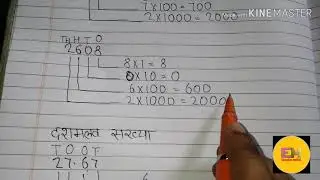 7×100 = 700
2×1000 = 2000
KINEMASTER
Th H T O
2608
8×1 = 8
0×10 = 0
6×100 = 600
2×1000 = 2000
दशमलव संख्या
T O O T
27.67